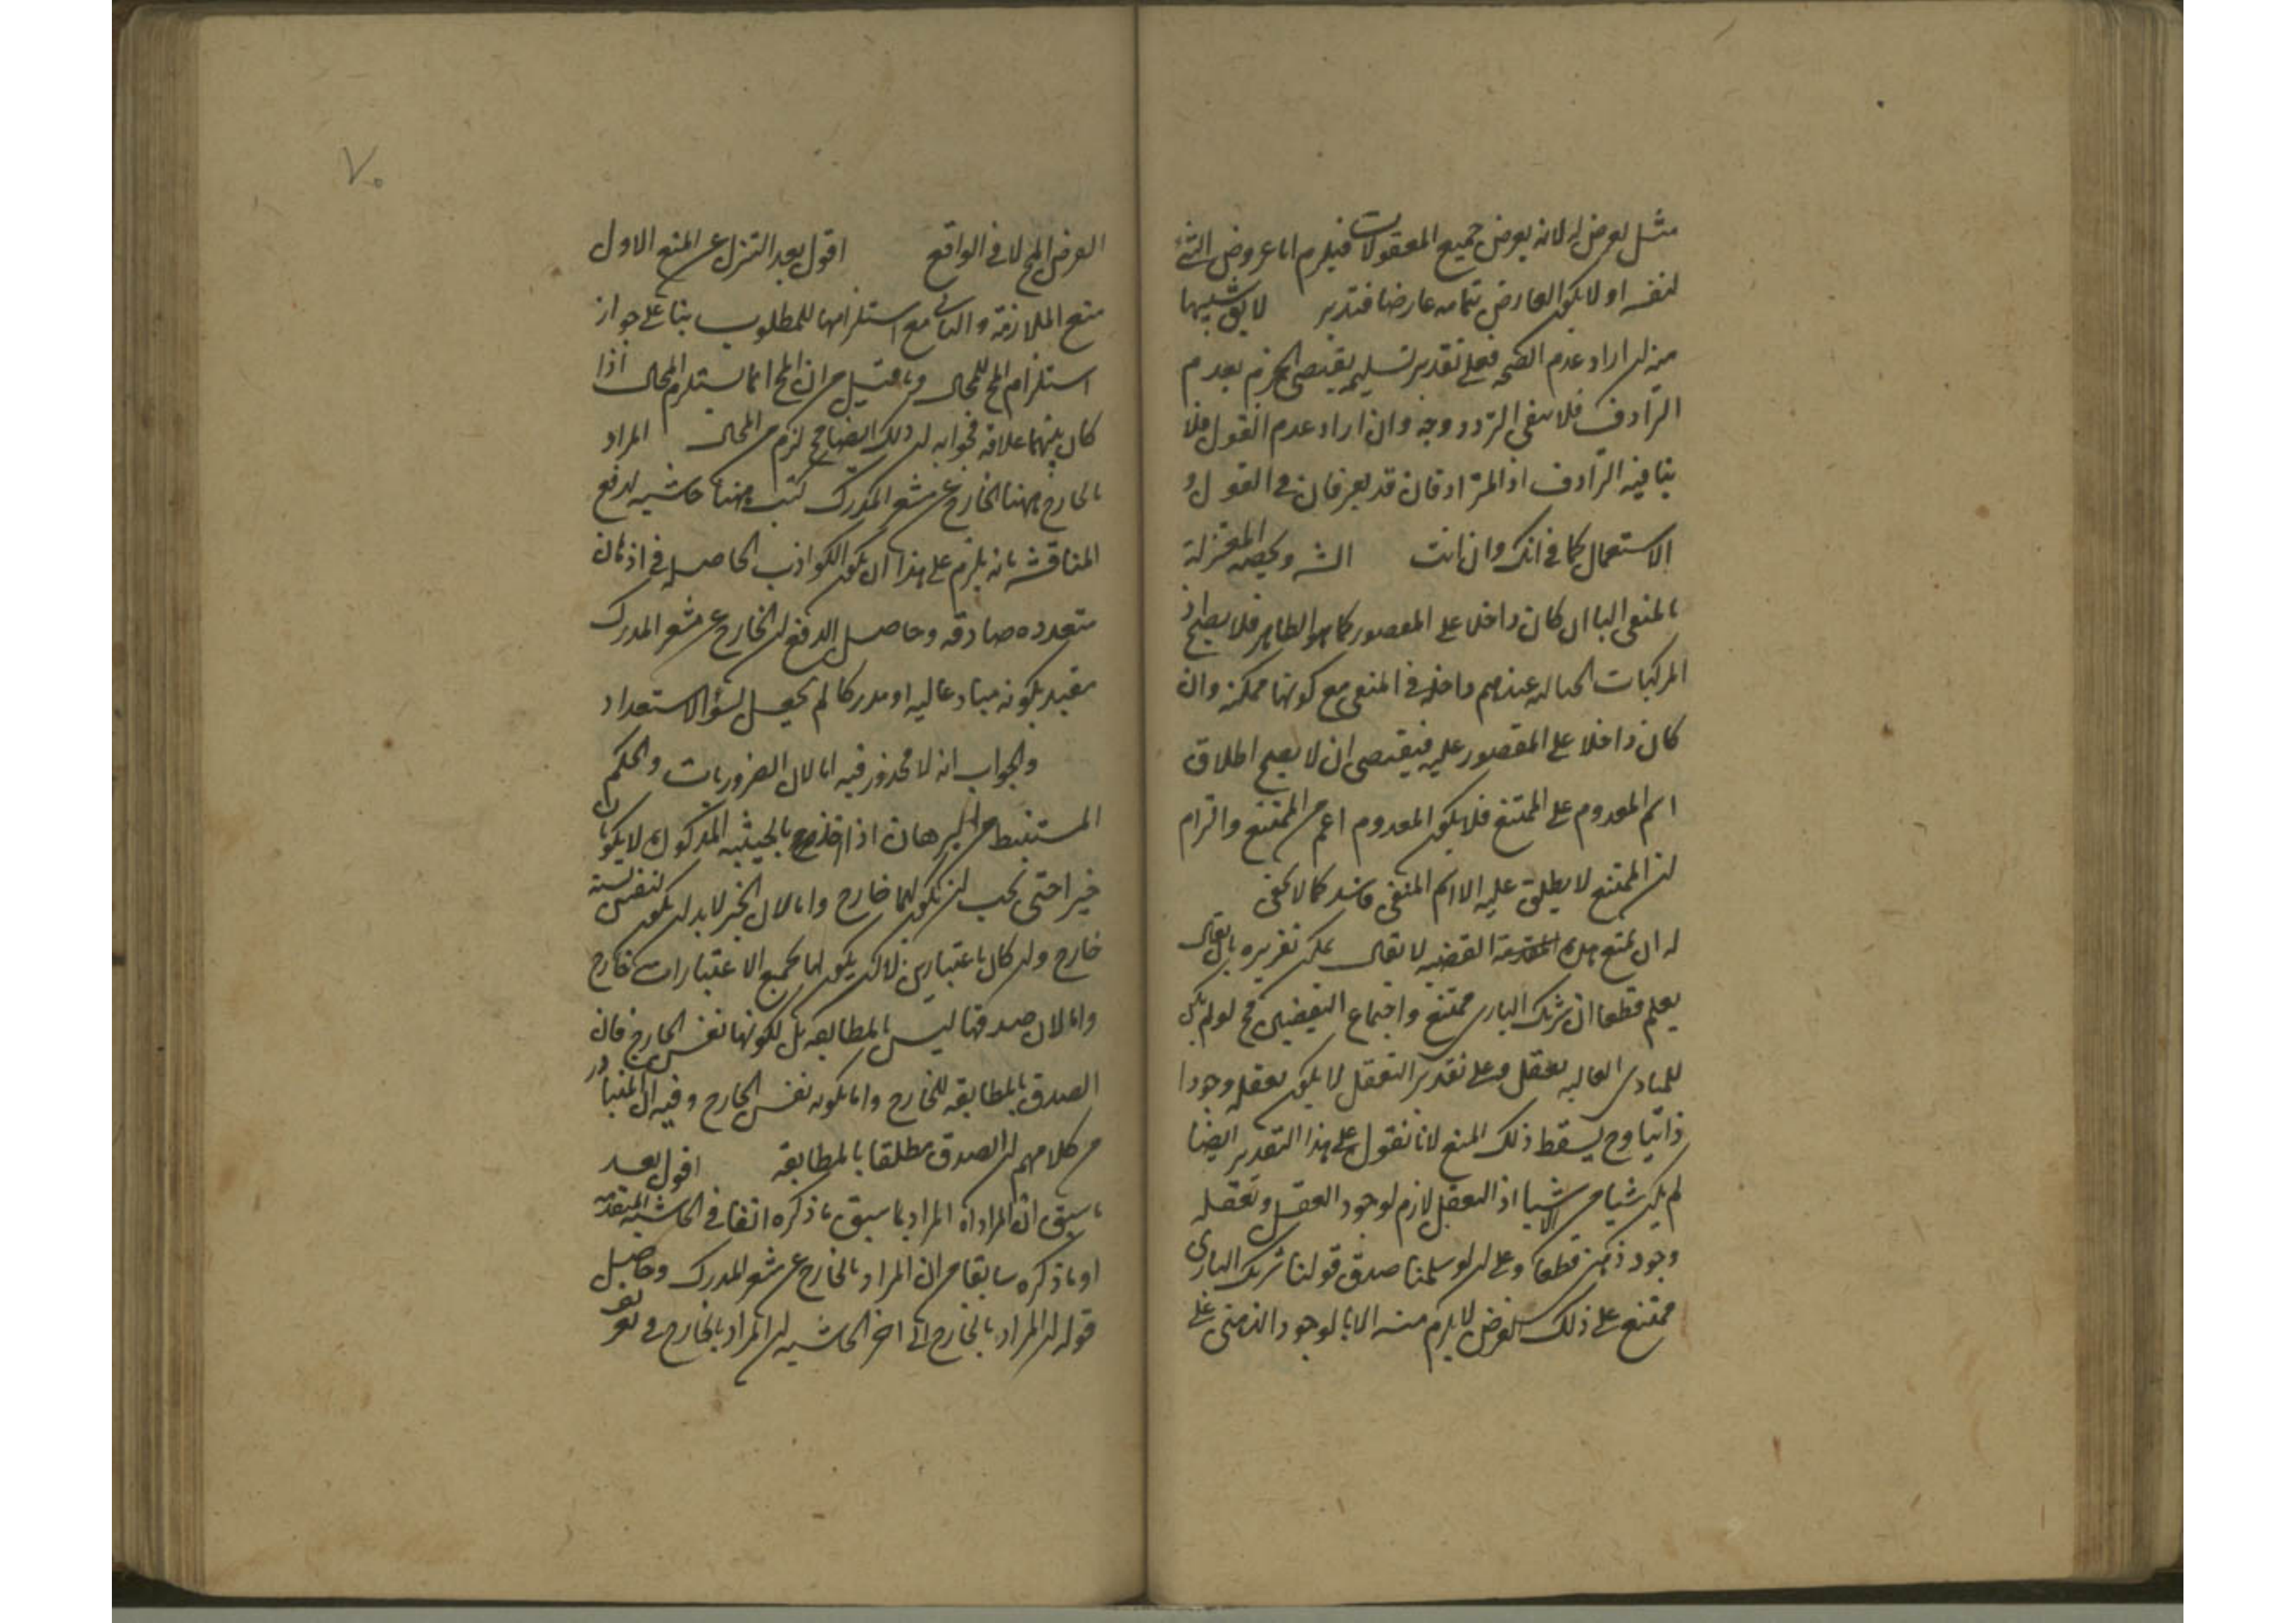 مثل يعرض له لانه يعرض جميع المعقولات فيلزم اما عروض الشئ
لنفسه او لا يكون العارض بتمامه عارضا فتدبر لا يق
منه ان اراد عدم الصحه فعلى تقدير تسليمه يقتضى الجزم بعدم
الترادف فلا يبقى التردد وجه وان اراد عدم القول فلا
ينافيه الترادف اذ المترادفان قد يعرفان فى القول و
الاستعمال كما فى انك وان انت الشه ويخصه المعتزلة
بالمنفى الباء ان كان داخلا على المقصور كما هو الظاهر فلا يصح اذ
المركبات الخياليه عندهم داخله فى المنفى مع كونها ممكنه وان
كان داخلا على المقصور عليه فيقتضى ان لا يصح اطلاق
اسم المعدوم على الممتنع فلا يكون المعدوم اعم من الممتنع والتزام
ان الممتنع لا يطلق عليه الا اسم المنفى فاسد كما لا يخفى
له ان يمنع هذه القضيه لا يقال يمكن تقريره بان يقال
يعلم قطعا ان شريك البارى ممتنع واجتماع النقيضين مح لو لم يكن
للمبادى العاليه تعقل وعلى تقدير التعقل لا يكون تعقله وجودا
ذاتيا وح يسقط ذلك المنع لانا نقول على هذا التقدير ايضا
لم يكن شيا من الاشيا اذ التعقل لازم لوجود العقل وتعقله
وجود ذهنى قطعا وعلى ان لو سلمنا صدق قولنا شريك البارى
ممتنع على ذلك الفرض لا يلزم منه الا بالوجود الذهنى على
٧٠
الفرض المح لا فى الواقع اقول بعد التنزل عن المنع الاول
منع الملازمة والثانى مع استلزامها للمطلوب بناء على جواز
استلزام المح للمحال وما قيل من ان المح انما يستلزم المحال اذا
كان بينهما علاقة فجوابه ان ذلك ايضا مح لزم من المحال المراد
بالخارج ههنا الخارج عن مشعر المدرك كتب ههنا حاشيه لدفع
المناقشه بانه يلزم على هذا ان يكون الكواذب الحاصله فى اذهان
متعدده صادقه وحاصل الدفع ان الخارج عن مشعر المدرك
مقيد بكونه مباد عاليه او مدركا لم يحصل لسوء الاستعداد
والجواب انه لا محذور فيه اما لان الضروريات والحكم
المستنبط من البرهان اذا اخذ بالحيثيه المذكوره لا يكونان
خبرا حتى يجب ان يكون لهما خارج واما لان الخبر لا بد ان يكون لنفس نسبته
خارج وان كان باعتبارين لا ان يكون لها بجميع الاعتبارات خارج
واما لان صدقها ليس بالمطابقه بل لكونها نفس الخارج فان
الصدق بالمطابقه للخارج واما بكونه نفس الخارج وفيه ان المتبادر
من كلامهم ان الصدق مطلقا بالمطابقه اقول بعد
ما سبق ان المراد اه المراد بما سبق ما ذكره انفا فى الحاشيه المتقدمه
او ما ذكره سابقا من ان المراد بالخارج عن مشعر المدرك وحاصل
قوله ان المراد بالخارج الى اخر الحاشيه ان المراد بالخارج فى